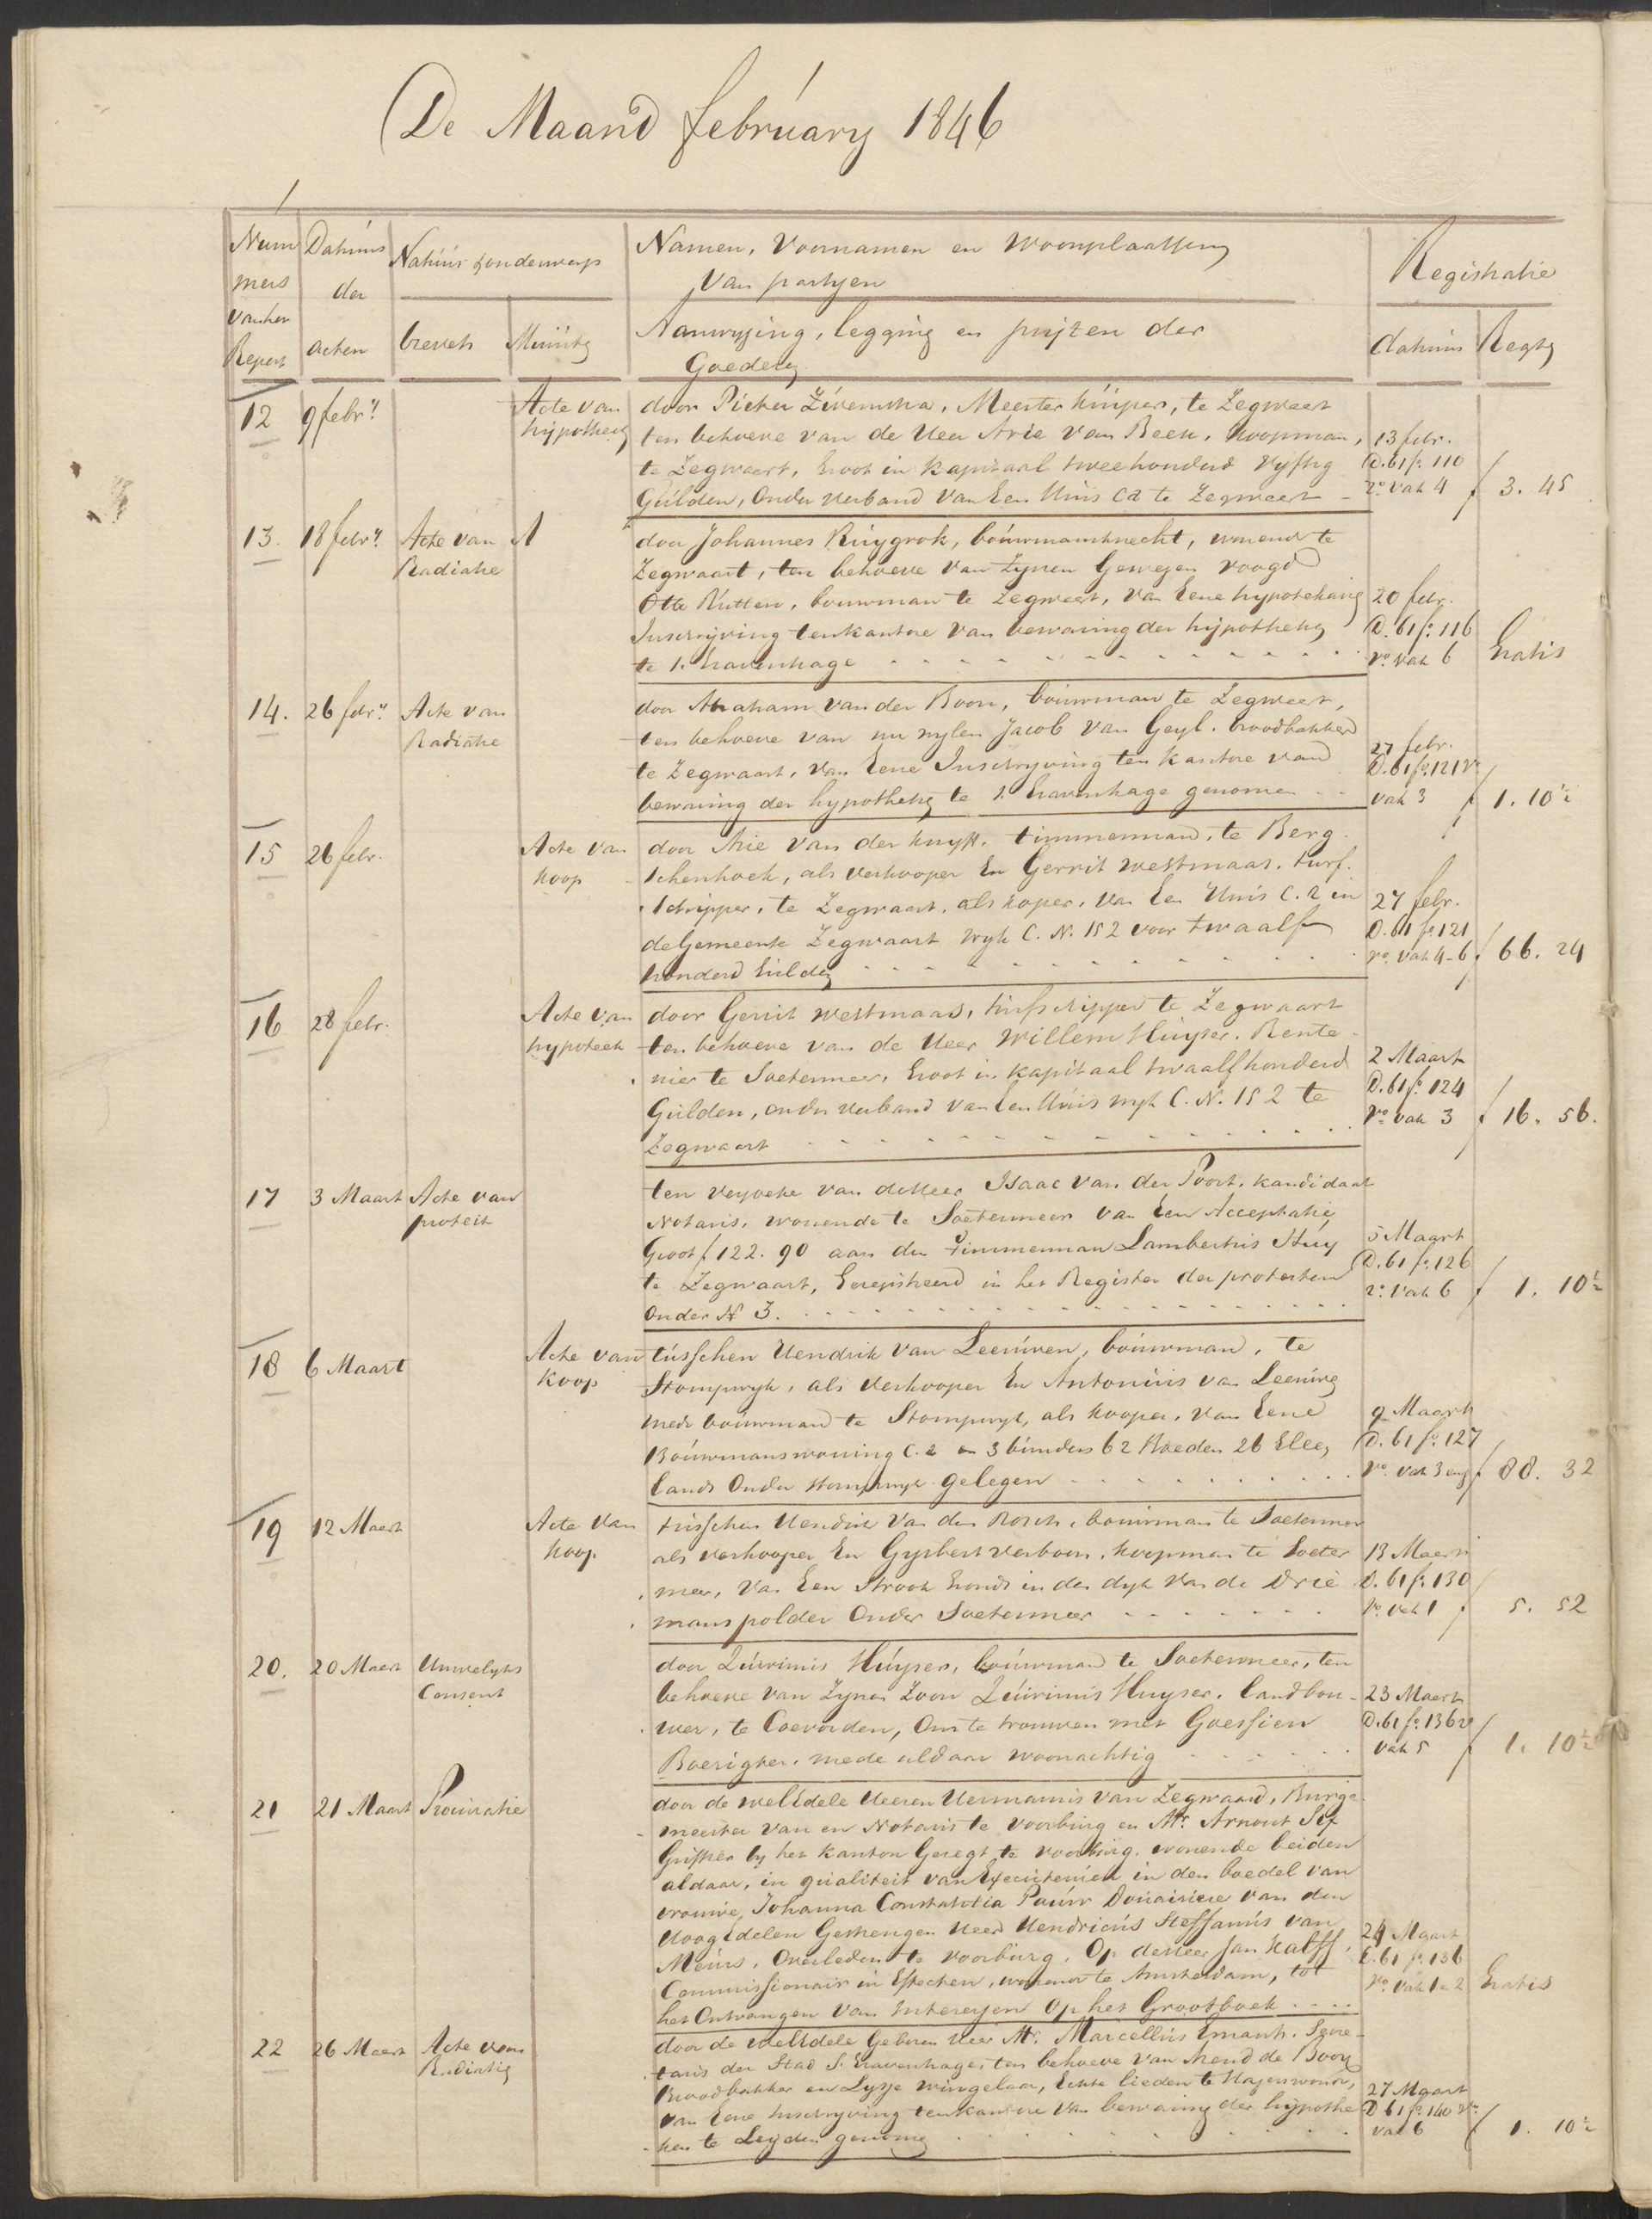 De Maand february 1846
Num
mers
van het
Repert
Datums
der
acten
Natuur & onderwerp
brevets
Minute
Namen, Voornamen en Woonplaatsen
van partyen
Aanwyzing, legging en prijzen der
Goederen
Registratie
datums
Regten
12
9 febry
Acte van
hypotheek
door Pieter Zuiemstra, Meester kuiper, te Zegwaert
ten behoeve van de Heer Arie van Beek, koopman,
te Zegwaert, Groot in kapitaal tweehonderd Vijftig
Gulden, Onder Verband Van Een Huis Ca te Zegwaert
13 febr.
D. 61 fo. 110
ro. vak 4
f 3. 45
13.
18 febry
Acte van
Radiatie
door Johannes Ruygrok, bouwmansknecht, wonend te
Zegwaart, ten behoeve van Zynen Gewezen voogd
Otte Rutten, bouwman te Zegwaert, van Eene hypothekaire
Inschrijving ten kantore van bewaring der hypotheken
te s. Gravenhage
20 febr.
D. 61 fo. 116
vo. vak 6
Gratis
14.
26 febry
Acte van
Radiatie
door Abraham van der Boon, bouwman te Zegwaert,
ten behoeve van nu wylen Jacob van Geyl, broodbakker
te Zegwaart, van Eene Inschryving ten kantore van
bewaring der hypotheken te s. Gravenhage genomen
27 febr.
D. 61 fo. 121 vo
vak 3
f 1. 10½
15
26 febr.
Acte van
koop
door Arie van der kruyk, timmerman, te Berg
schenhoek, als verkooper En Gerrit Westmaas, turf
schipper, te Zegwaart, als koper, van Een Huis C.a in
de Gemeente Zegwaart wyk C. N. 152 voor twaalf
honderd Gulden
27 febr.
D. 61 fo. 121
vo. vak 4-6
f 66. 24
16
28 febr.
Acte van
hypoteek
door Gerrit Westmaas, turfschipper te Zegwaart
ten behoeve van de Heer Willem Huyser, Rente
nier te Soetermeer, Groot in kapitaal twaalfhonderd
Gulden, onder verband van Een Huis wyk C. N. 152 te
Zegwaart
2 Maart
D. 61 fo. 124
vo. vak 3
f 16. 56.
17
3 Maart
Acte van
protest
ten verzoeke van de Heer Isaac van der Poort, kandidaat
Notaris, wonende te Soetermeer van Een Acceptatie
Groot f 122. 90 aan den timmerman Lambertus Stuy
te Zegwaart, Geregistreerd in het Register der protesten
Onder N 3.
5 Maart
D. 61 fo. 126
ro. vak 6
f 1. 10½
18
6 Maart
Acte van
koop
tusschen Hendrik van Leeuwen, bouwman, te
Stompwyk, als verkooper En Antonius van Leeuwen
mede bouwman te Stompwyk, als kooper, van Eene
Bouwmanswoning C.a en 3 bunders 62 Roeden 26 Ellen
lands Onder Stompwyk gelegen
9 Maart
D. 61 fo. 127
vo. vak 3
f 88. 32
19
12 Maart
Acte van
koop
tusschen Hendrik van den Bosch, bouwman te Soetermeer
als verkooper En Gysbert Verboon, koopman te Soeter
meer, van Een Strook Gronds in den dyk van de Drie
manspolder Onder Soetermeer
13 Maart
D. 61 fo. 130
vo. vak 1
f 5. 52
20.
20 Maart
Huwelyks
Consent
door Quirinus Huyser, bouwman te Soetermeer, ten
behoeve van Zynen Zoon Quirinus Huyser, landbou
wer, te Coevorden, Om te trouwen met Goessien
Boerigter, mede aldaar woonachtig
23 Maart
D. 61 fo. 136 vo
vak 5
f 1. 10½
21
21 Maart
Procuratie
door de welEdele Heeren Hermanus van Zegwaard, Burge
meester van en Notaris te Voorburg en Mr. Arnout
Griffier by het kanton Geregt te Voorburg, wonende beiden
aldaar, in qualiteit van Executeuren in den boedel van
vrouwe, Johanna Constantia Pauw Douairiere van den
HoogEdelen Gestrengen Heer Hendricus Steffanus van
Meurs, Overleden te Voorburg. Op de Heer Jan Kalff,
Commissionair in Effecten, wonende te Amsterdam, tot
het Ontvangen van Interessen Op het Grootboek
24 Maart
D. 61 fo. 136
vo. vak 1 2
Gratis
22
26 Maart
Acte van
Radiatie
door de welEdele Geboren Heer Mr. Marcellus Emants, Secre
taris der Stad S. Gravenhage, ten behoeve van Arend de Booy
Broodbakker en Lysje Wingelaar, Echte lieden te Hazerswoude,
van Eene Inschryving ten kantore van bewaring der hypothe
ken te Leyden genomen
27 Maart
D 61 fo. 140 vo.
vak 6
f 1. 10½